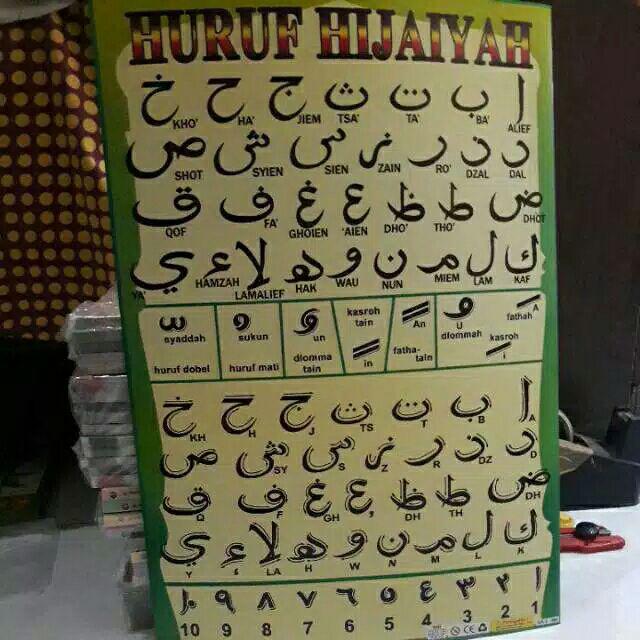 HURUF HIJAIYAH
ا ب ت ث ج ح خ
ALIEF BA' TA' TSA' JIEM HA' KHO'
د ذ ر ز س ش ص
DAL DZAL RO' ZAIN SIEN SYIEN SHOT
ض ط ظ ع غ ف ق
DHOT THO' DHO' 'AIEN GHOIEN FA' QOF
ك ل م ن و ه لا ء ي
KAF LAM MIEM NUN WAU HAK LAMALIEF HAMZAH YA'
fathah A
U dlommah
kasroh i
An fatha-tain
kasroh tain in
un dlomma tain
sukun huruf mati
syaddah huruf dobel
ا ب ت ث ج ح خ
A B T TS J H KH
د ذ ر ز س ش ص
D DZ R Z S SY
ض ط ظ ع غ ف ق
DH TH DH ' GH F Q
ك ل م ن و ه لا ء ي
K L M N W H LA ء Y
١ ٢ ٣ ٤ ٥ ٦ ٧ ٨ ٩ ١٠
1 2 3 4 5 6 7 8 9 10